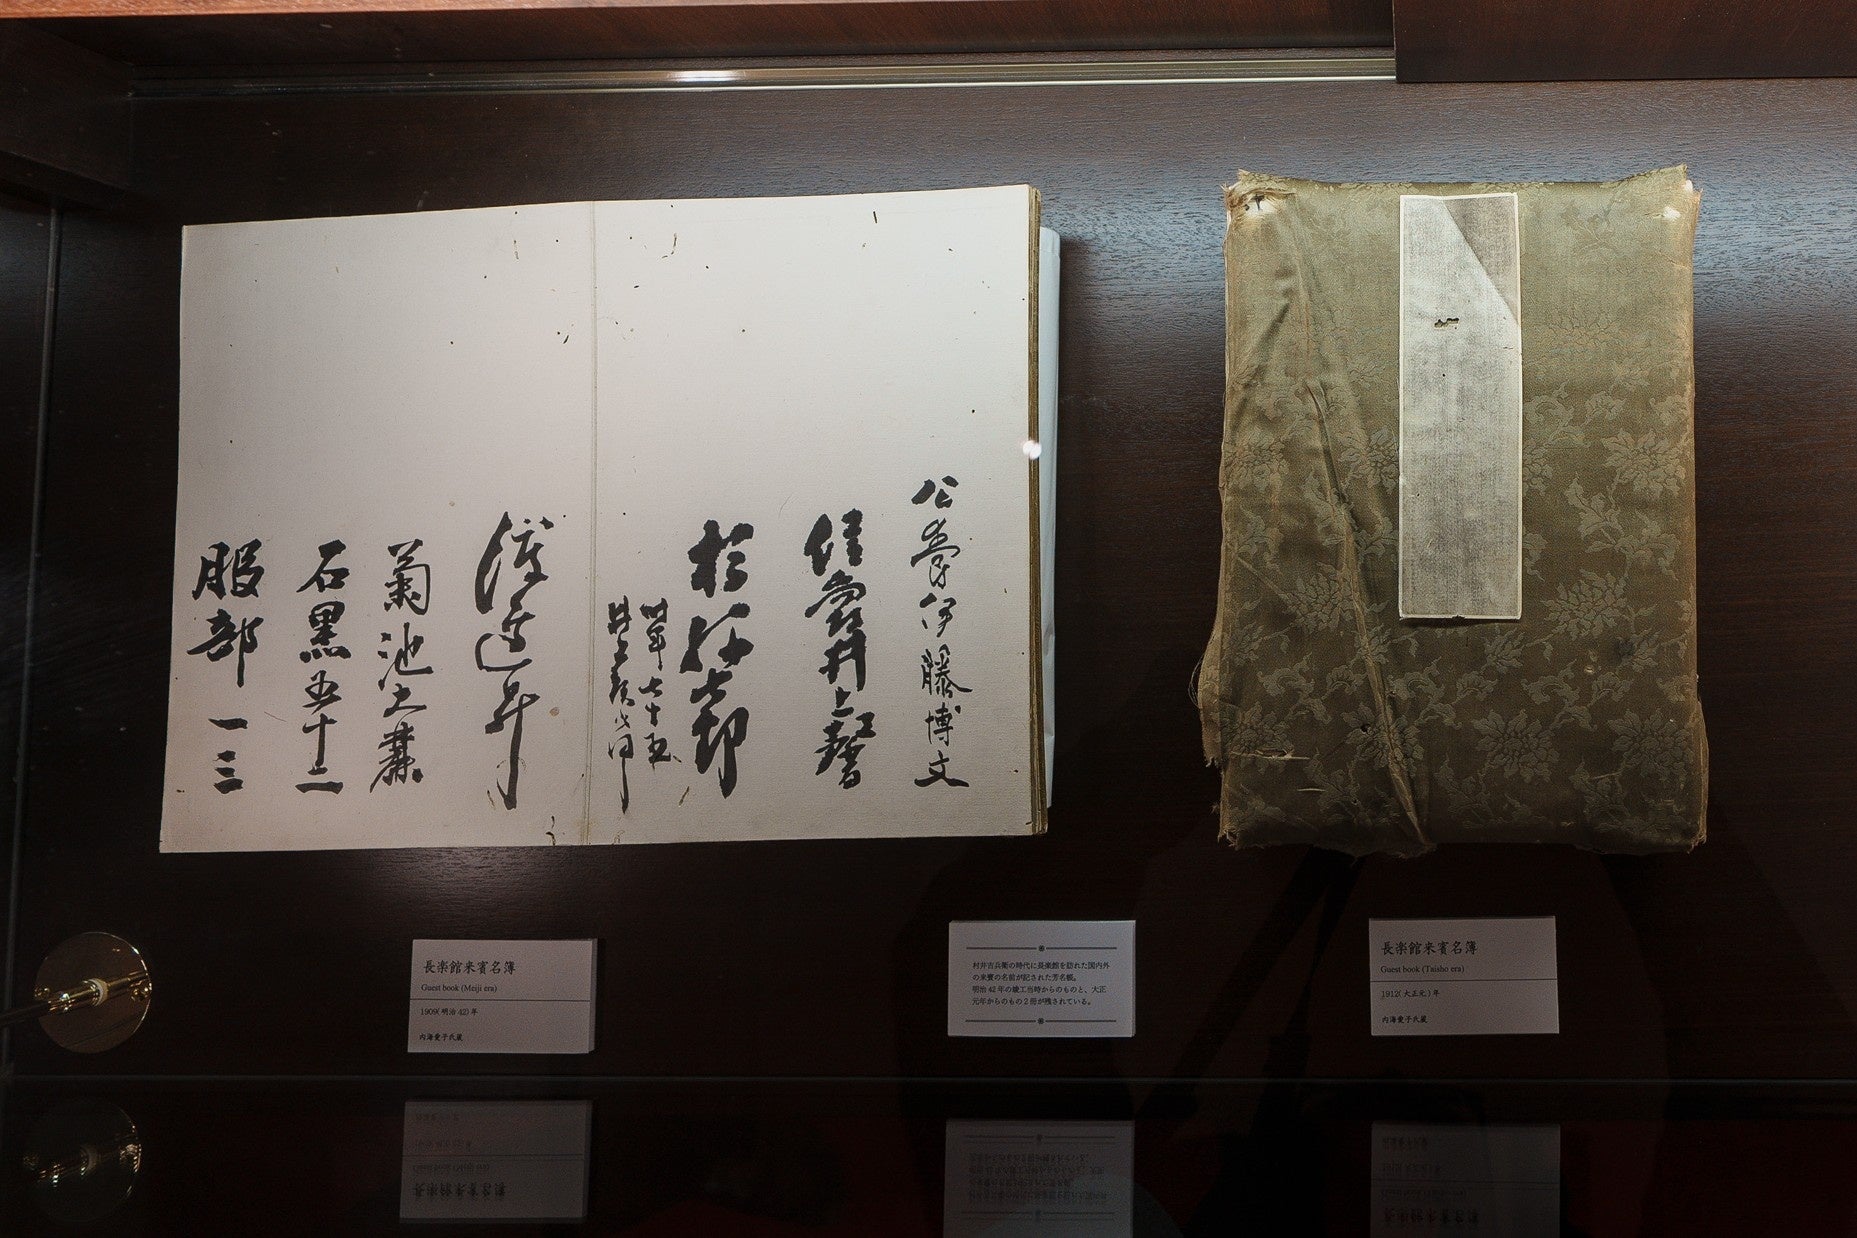 公爵伊藤博文
侯爵井上馨
杉孫七郎
時年七十五
渡邉昇
菊池大麓
石黒五十二
服部一三
長楽館来賓名簿
Guest book (Meiji era)
1909(明治42)年
内海愛子氏蔵
村井吉兵衛の時代に長楽館を訪れた国内外
の来賓の名前が記された芳名帳。
明治42年の竣工当時からのものと、大正
元年からのもの2冊が残されている。
長楽館来賓名簿
Guest book (Taisho era)
1912(大正元)年
内海愛子氏蔵